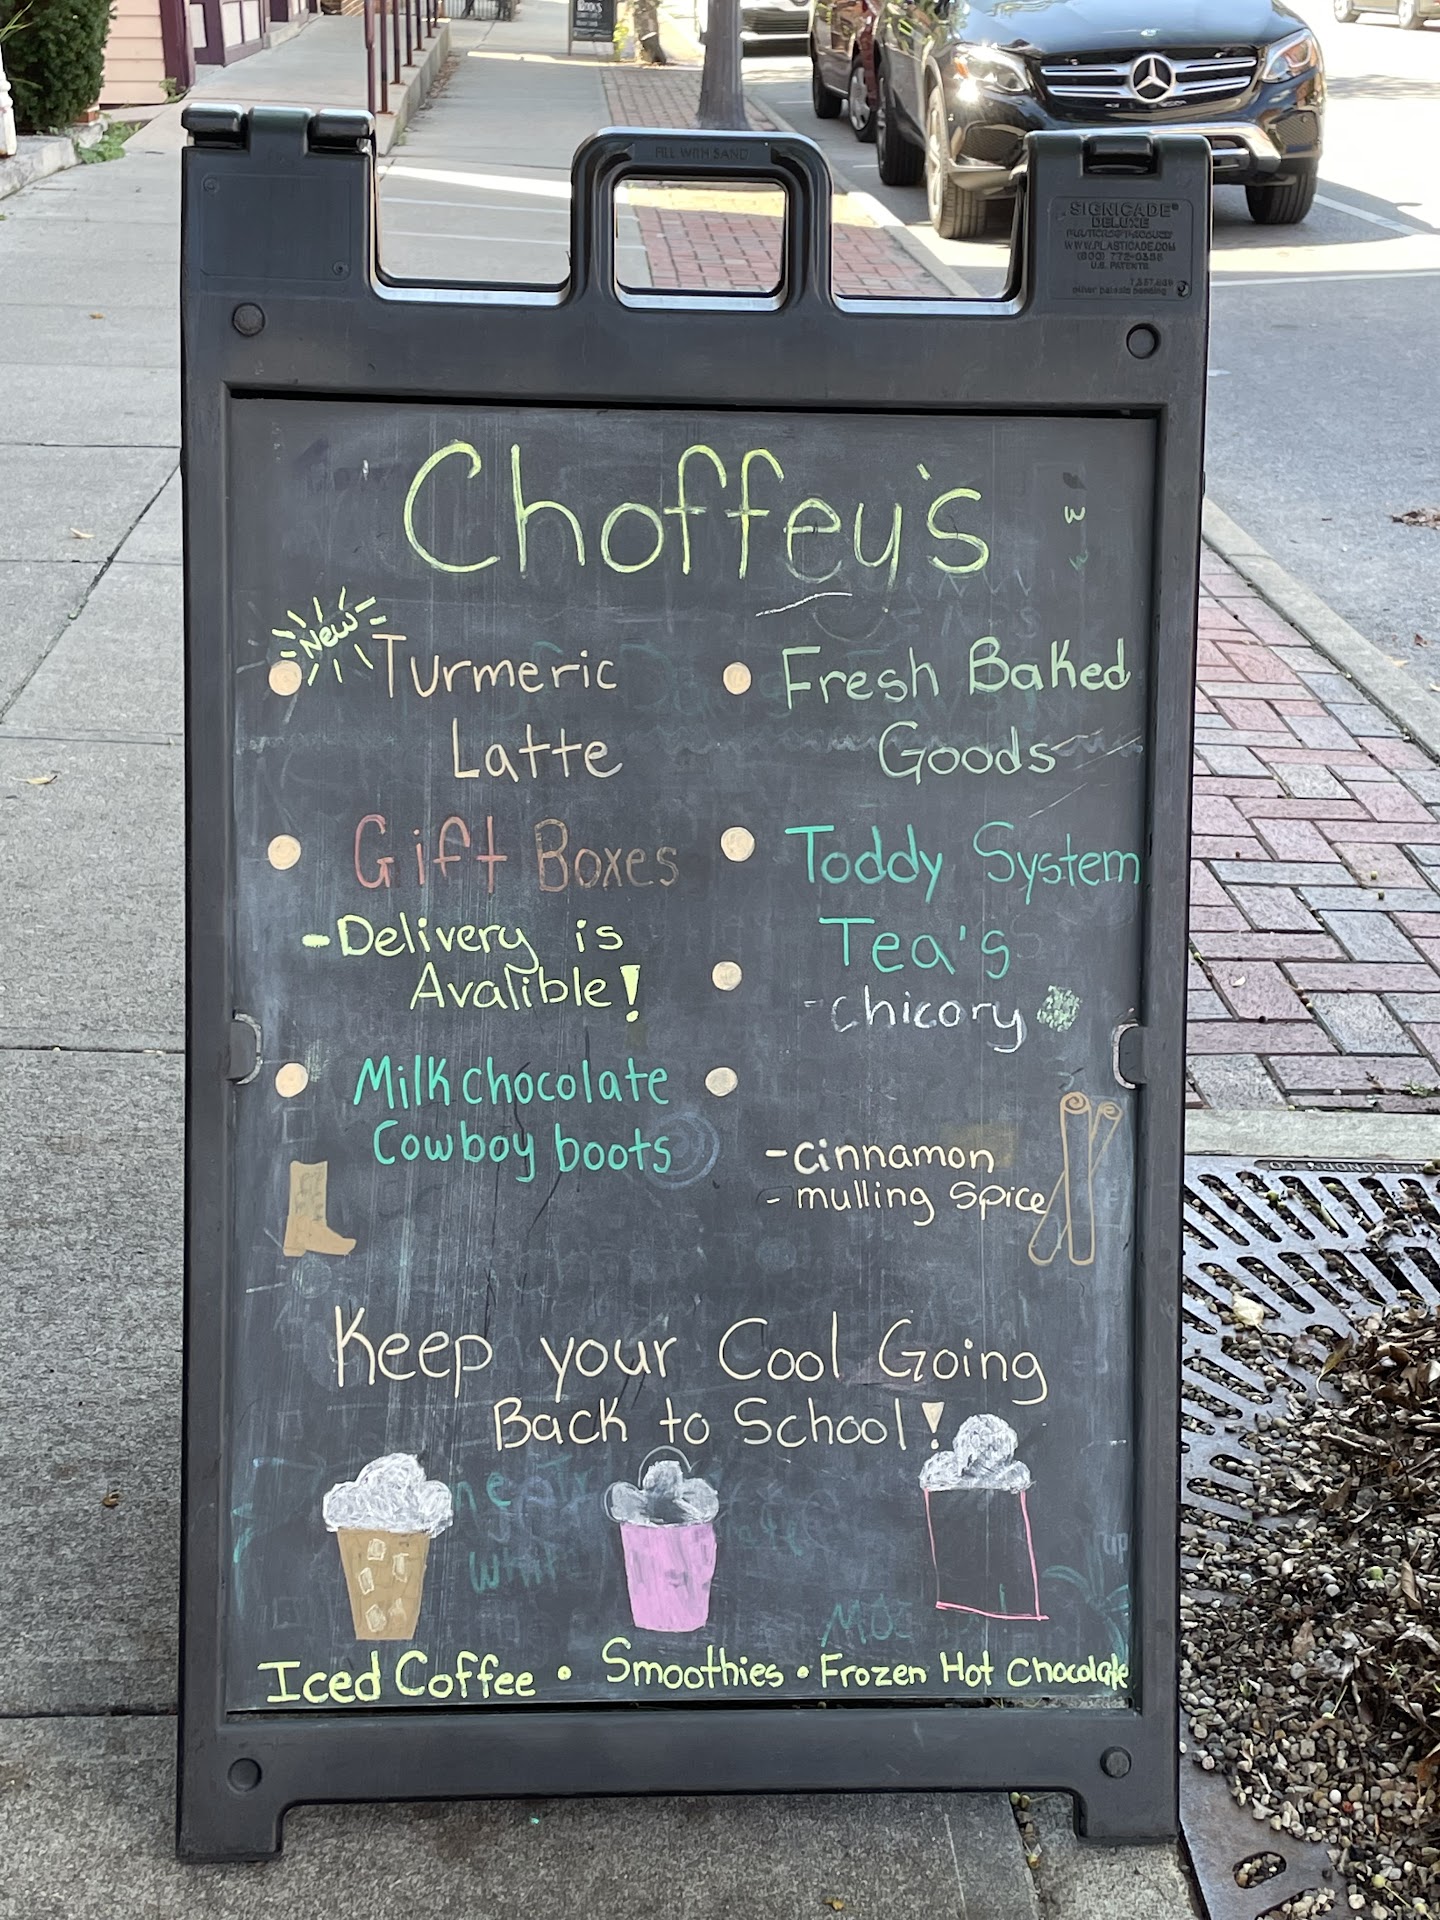 BOOKS
FILL WITH SAND
SIGNICADE®
DELUXE
WWW.PLASTICADE.COM
(800) 772-0355
U.S. PATENTS
other patents pending
Choffey's
New
Turmeric
Latte
Gift Boxes
-Delivery is
Avalible!
Milk chocolate
Cowboy boots
Fresh Baked
Goods
Toddy System
Tea's
-chicory
-cinnamon
- mulling Spice
Keep your Cool Going
Back to School!
Iced Coffee • Smoothies • Frozen Hot Chocolate